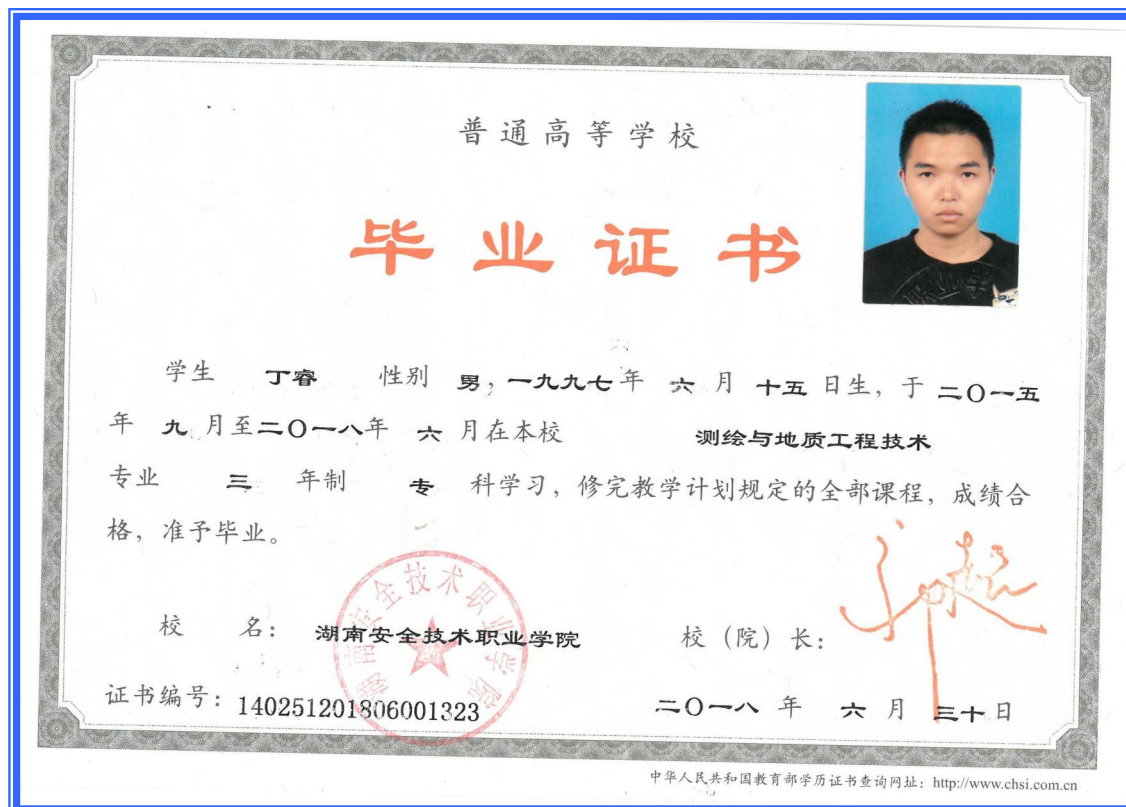 普通高等学校
毕业证书
学生 丁睿 性别 男，一九九七年 六 月 十五 日生，于 二〇一五
年 九 月至二〇一八年 六 月在本校 测绘与地质工程技术
专业 三 年制 专 科学习，修完教学计划规定的全部课程，成绩合
格，准予毕业。
校 名： 湖南安全技术职业学院 校（院）长：
湖南安全技术职业学院
证书编号：140251201806001323 二〇一八 年 六 月 三十日
中华人民共和国教育部学历证书查询网址：http://www.chsi.com.cn